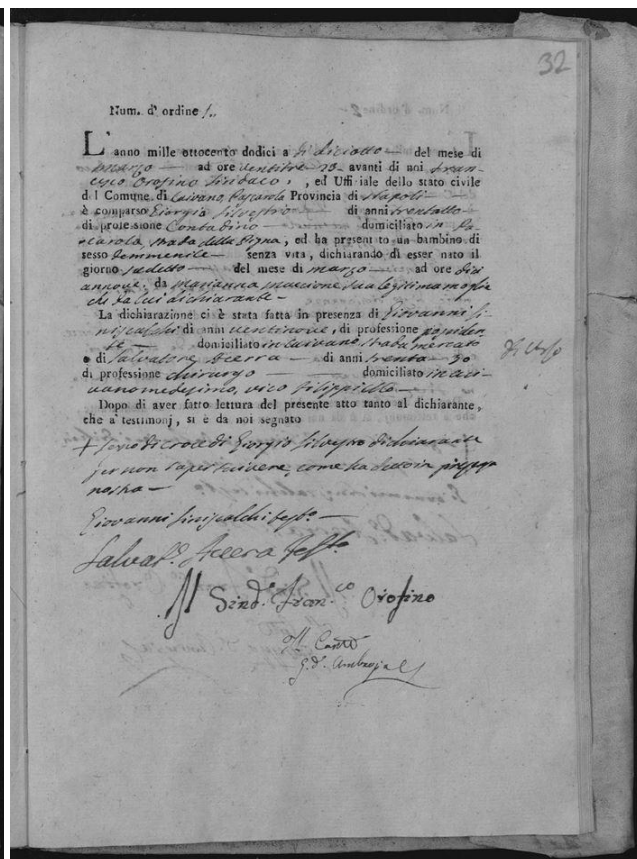 32
Num. d' ordine 1..
L' anno mille ottocento dodici a dì diciotto del mese di
marzo ad ore ventitre 23 avanti di noi Fran-
cesco Orofino Sindaco, , ed Uffi iale dello stato civile
del Comune di Caivano, Pascarola Provincia di Napoli
è comparso Giorgio Silvestro di anni trentotto
di profe sione Contadino domiciliato in Pa-
scarola, strada della Pigna, ed ha presen to un bambino di
sesso femmenile senza vita, dichiarando di esser nato il
giorno sudetto del mese di marzo ad ore dici
annove, da Marianna sua legitima moglie
da lui dichiarante
La dichiarazione ci è stata fatta in presenza di Giovanni Si-
niscalchi di anni ventinove, di professione possiden
te domiciliato in Caivano strada mercato
e di Salvatore Acerra di anni trenta 30
di professione chirurgo domiciliato in Cai-
vano medesimo, vico
Dopo di aver fatto lettura del presente atto tanto al dichiarante,
che a' testimonj, si è da noi segnato
+ segno di croce di Giorgio Silvestro dichiarante
per non saper scrivere, come ha detto in presenza
nostra
Giovanni Siniscalchi test.o
Salvat.e Acerra Test.o
Il Sind.o Fran.co Orofino